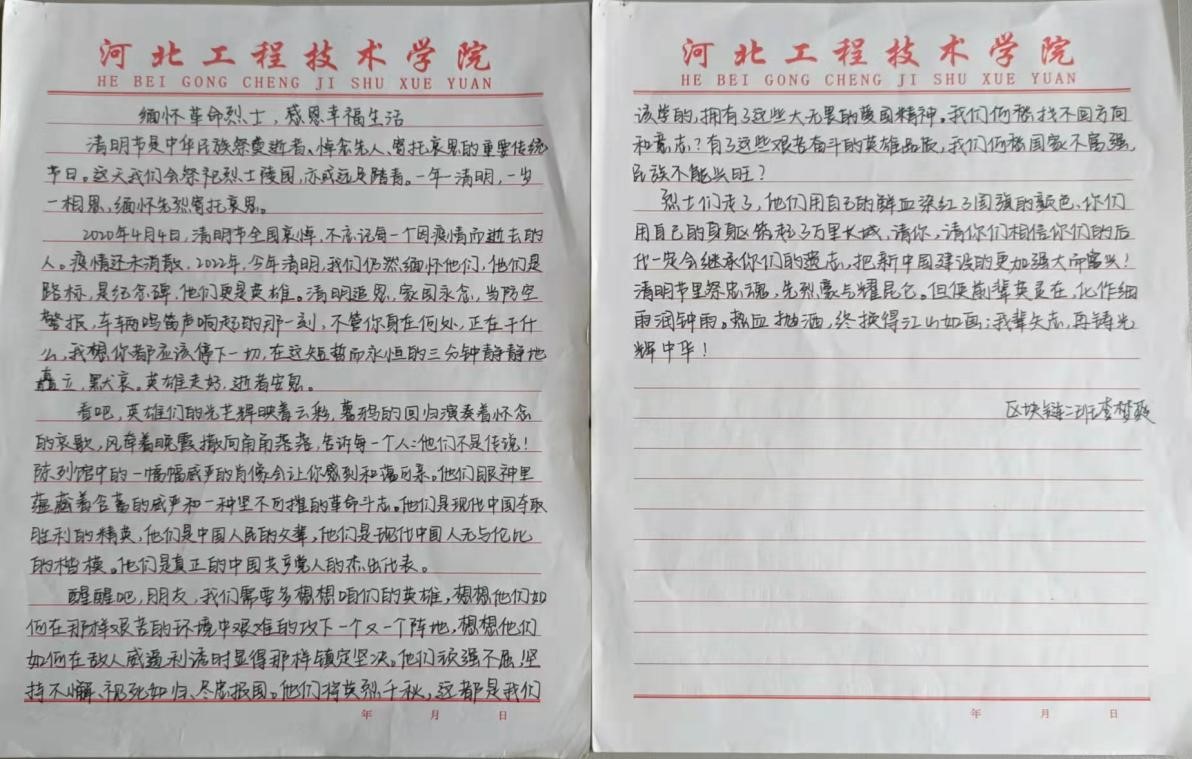 河北工程技术学院
HE BEI GONG CHENG JI SHU XUE YUAN
缅怀革命烈士，感恩幸福生活
清明节是中华民族祭奠逝者、悼念先人、寄托哀思的重要传统
节日。这天我们会祭祀烈士陵园，亦或远足踏青。一年一清明，一岁
一相思，缅怀先烈寄托哀思。
2020年4月4日，清明节全国哀悼，不忘记每一个因疫情而逝去的
人。疫情还未消散，2022年，今年清明，我们仍然缅怀他们，他们是
路标，是纪念碑，他们更是英雄。清明追思，家国永念，当防空
警报，车辆鸣笛声响起的那一刻，不管你身在何处，正在干什
么，我想你都应该停下一切，在这短暂而永恒的三分钟静静地
矗立，默哀。英雄走好，逝者安息。
看吧，英雄们的光芒辉映着云彩，暮鸦的回归演奏着怀念
的哀歌，风牵着晚霞撒向角角落落，告诉每一个人：他们不是传说！
陈列馆中的一幅幅威严的肖像会让你感到和蔼可亲。他们眼神里
蕴藏着含蓄的威严和一种坚不可摧的革命斗志。他们是现代中国夺取
胜利的精英，他们是中国人民的父辈，他们是现代中国人无与伦比
的楷模。他们是真正的中国共产党人的杰出代表。
醒醒吧，朋友，我们需要多想想咱们的英雄，想想他们如
何在那样艰苦的环境中艰难的攻下一个又一个阵地，想想他们
如何在敌人威逼利诱时显得那样镇定坚决。他们顽强不屈，坚
持不懈、视死如归、尽忠报国。他们将英烈千秋，这都是我们
年 月 日
河北工程技术学院
HE BEI GONG CHENG JI SHU XUE YUAN
该学的，拥有了这些大无畏的爱国精神。我们何愁找不回方向
和意志？有了这些艰苦奋斗的英雄品质，我们何愁国家不富强，
民族不能兴旺？
烈士们走了，他们用自己的鲜血染红了国旗的颜色、你们
用自己的身躯筑起了万里长城，请你，请你们相信你们的后
代一定会继承你们的遗志，把新中国建设的更加强大而富兴！
清明节里祭忠魂，先烈豪与耀昆仑。但使前辈英灵在，化作细
雨润钟雨。热血抛洒，终换得江山如画；我辈矢志，再铸光
辉中华！
区块链二班李梦
年 月 日